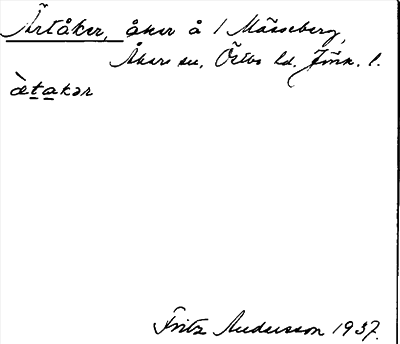 Ärtåker, åker å 1 Mässeberg,
Åkers sn. Östbo hd. Jönk. l.
ætakər
Fritz Andersson 1937.